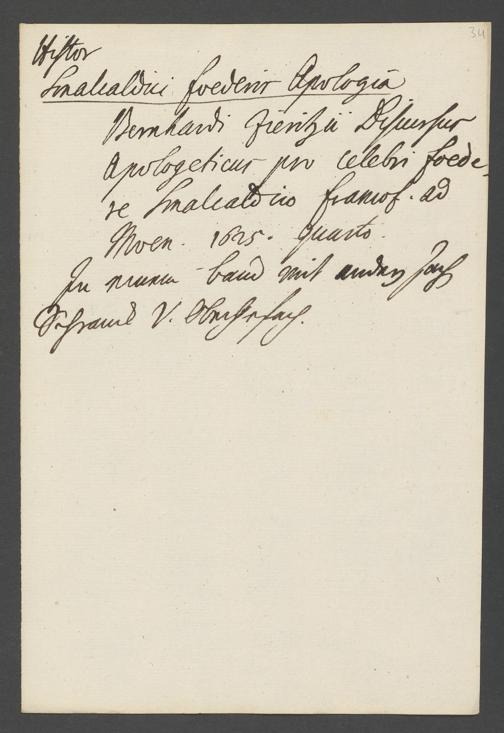 34
Histor
Smalcaldici foederis Apologia
Bernhardi Zieritzii Discursus
Apologeticus pro celebri foede-
re Smalcaldico francof. ad
Moen. 1625. quarto.
In einem band mit andern
Schranck V.